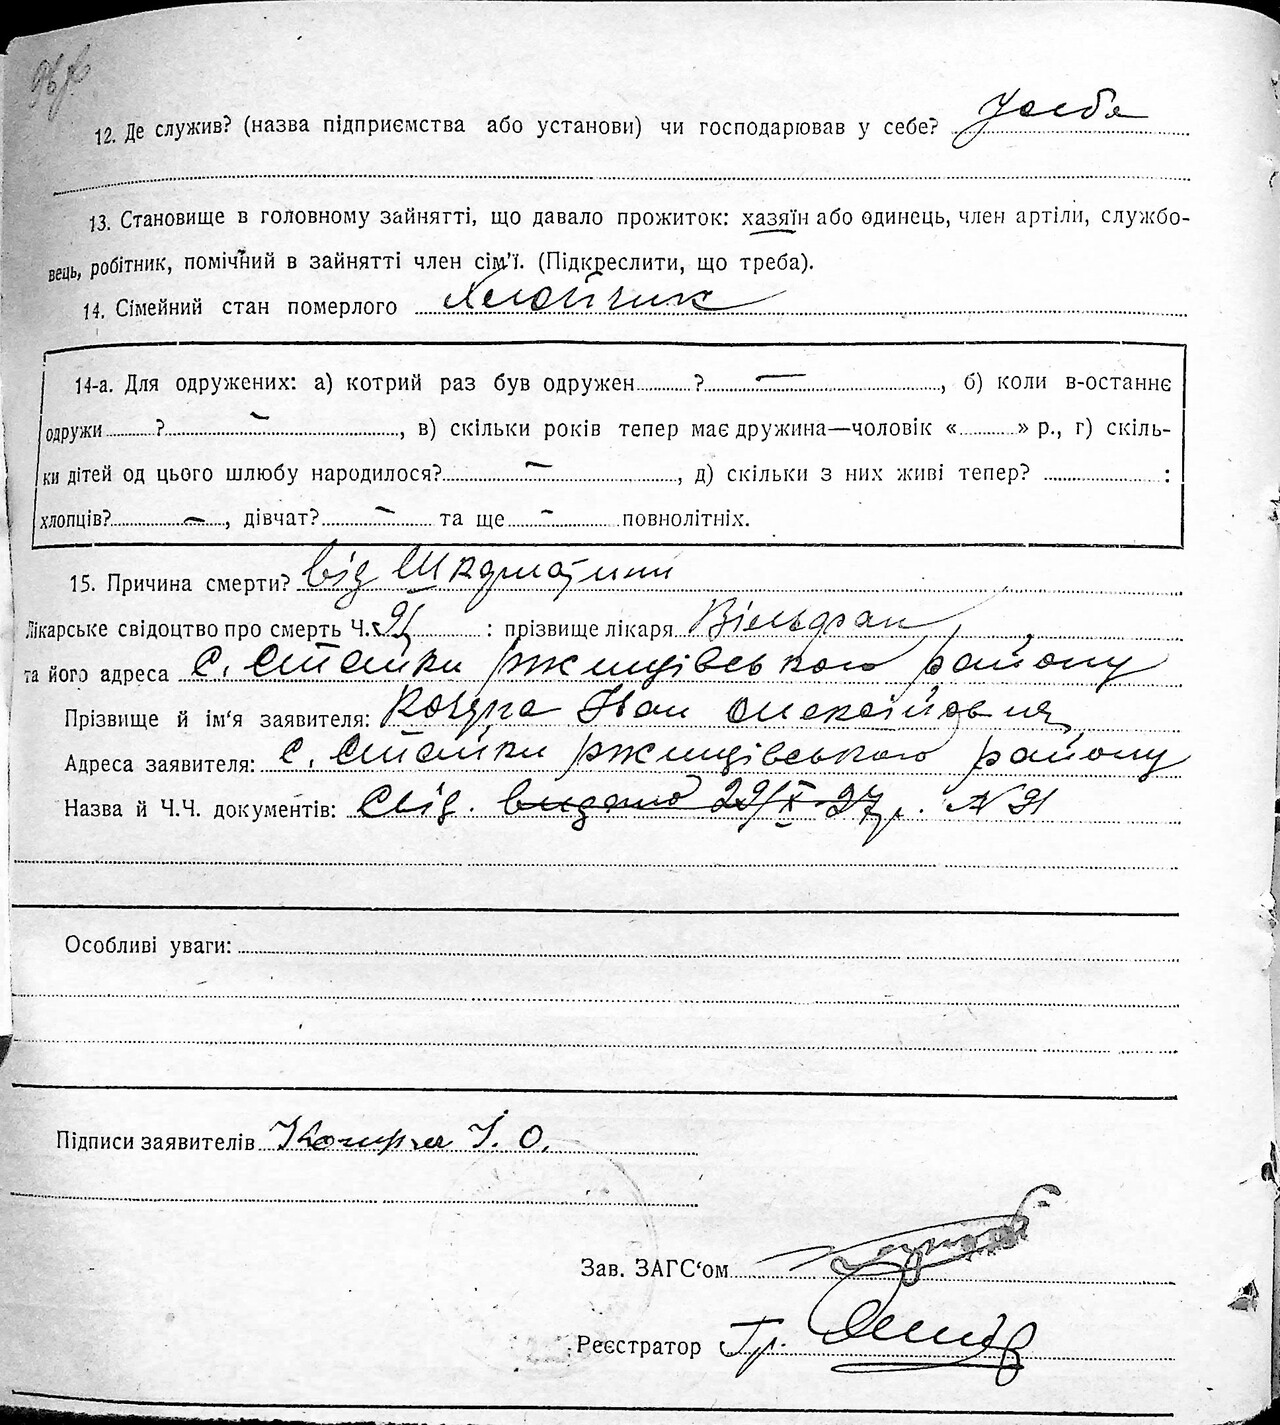 12. Де служив? (назва підприємства або установи) чи господарював у себе? у себе
13. Становище в головному зайнятті, що давало прожиток: хазяїн або одинець, член артіли, службо-
вець, робітник, помічний в зайнятті член сім'ї. (Підкреслити, що треба).
14. Сімейний стан померлого Хлопчик
14-а. Для одружених: а) котрий раз був одружен ? —, б) коли в-останнє
одружи ? —, в) скільки років тепер має дружина—чоловік « » р., г) скіль-
ки дітей од цього шлюбу народилося? —, д) скільки з них живі тепер? :
хлопців? —, дівчат? — та ще - повнолітніх.
15. Причина смерти? від Шкарлатини
Лікарське свідоцтво про смерть Ч. 21 : прізвище лікаря
та його адреса с. Стайки ржищівського району
Прізвище й ім'я заявителя: Іван Олексійович
Адреса заявителя: с. Стайки ржищівського району
Назва й Ч.Ч. документів: Свід. видано 29/X 27 р. N 21
Особливі уваги:
Підписи заявителів І. О.
Зав. ЗАГС'ом
Реєстратор